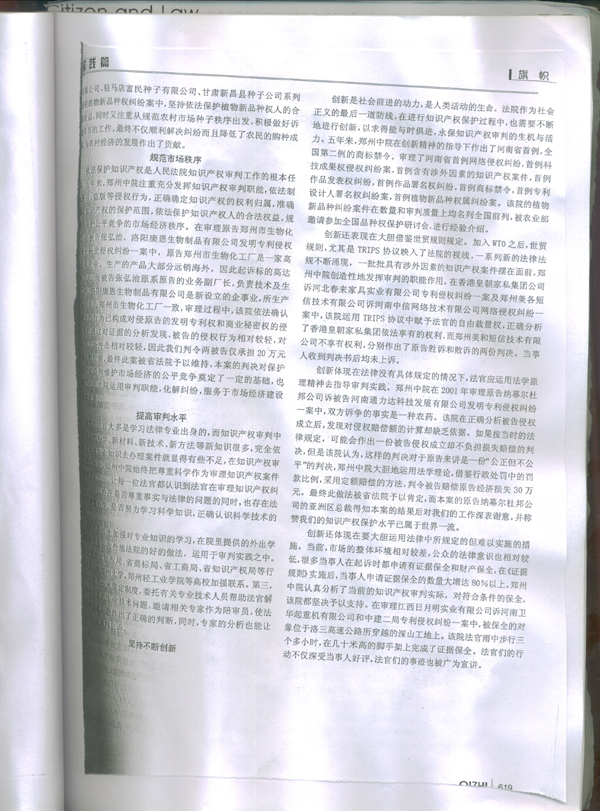 Citizen and Law
践篇
旗 帜
公司、驻马店富民种子有限公司、甘肃新昌县种子公司系列
植物新品种权纠纷案中,坚持依法保护植物新品种权人的合
同时又注重从规范农村市场种子秩序出发,积极做好诉
的工作,最终不仅顺利解决纠纷而且降低了农民的购种成
农村经济的发展作出了贡献。
规范市场秩序
法保护知识产权是人民法院知识产权审判工作的根本任
年来,郑州中院注重充分发挥知识产权审判职能,依法制
版等侵权行为,正确确定知识产权的权利归属,准确
产权的保护范围,依法保护知识产权人的合法权益,规
公平竞争的市场经济秩序。在审理原告郑州市生物化
告张弘治、洛阳康恩生物制品有限公司发明专利侵权
密侵权纠纷一案中,原告郑州市生物化工厂是一家高
,生产的产品大部分远销海外,因此起诉标的高达
被告张弘治原系原告的业务副厂长,负责技术及生
康恩生物制品有限公司是新设立的企业,所生产
郑州市生物化工厂一致,审理过程中,该院依法确认
为已构成对原告的发明专利权和商业秘密权的侵
对证据的分析发现,被告的侵权行为相对较轻,对
冲击相对较轻,因此我们判令两被告仅承担20万元
,最终此案被省法院予以维持,本案的判决对保护
维护市场经济的公平竞争奠定了一定的基础,也
运用审判职能,化解纠纷,服务于市场经济建设
提高审判水平
大多是学习法律专业出身的,而知识产权审判中
、新材料、新技术、新方法等新知识很多,完全依
知识去办理案件就显得有些不足,在知识产权审
中院始终把尊重科学作为审理知识产权案件
每一位法官都认识到法官在审理知识产权纠
是否尊重事实与法律的问题的同时,也存在法
是否努力学习科学知识,正确认识科学技术的
强对专业知识的学习,在院里提供的外出学
地法院的好的做法,运用于审判实践之中。
局、省商标局、省工商局、省知识产权局等行
学、郑州轻工业学院等高校加强联系。第三,
定制度,委托有关专业技术人员帮助法官解
技术问题,邀请相关专家作为陪审员,使法
出了正确的判断,同时,专家的分析也能让
坚持不断创新
创新是社会前进的动力,是人类活动的生命。法院作为社会
正义的最后一道防线,在进行知识产权保护过程中,也需要不断
地进行创新,以求得能与时俱进,永保知识产权审判的生机与活
力。五年来,郑州中院在创新精神的指导下作出了河南省首例,全
国第二例的商标禁令,审理了河南省首例网络侵权纠纷,首例科
技成果权侵权纠纷案,首例含有涉外因素的知识产权案件,首例
作品发表权纠纷,首例作品署名权纠纷,首例商标禁令,首例专利
设计人署名权纠纷案,首例植物新品种权属纠纷案。该院的植物
新品种纠纷案件在数量和审判质量上均名列全国前列,被农业部
邀请参加全国品种权保护研讨会,进行经验介绍。
创新还表现在大胆借鉴世贸规则规定。加入WTO之后,世贸
规则,尤其是TRIPS协议映入了法院的视线,一系列新的法律法
规不断涌现,一批批具有涉外因素的知识产权案件摆在面前,郑
州中院创造性地发挥审判的职能作用,在香港皇朝家私集团公司
诉河北春来家具实业有限公司专利侵权纠纷一案及郑州美各短
信技术有限公司诉河南中信网络技术有限公司网络侵权纠纷一
案中,该院运用TRIPS协议中赋予法官的自由裁量权,正确分析
了香港皇朝家私集团依法享有的权利,而郑州美和短信技术有限
公司不享有权利,分别作出了原告胜诉和败诉的两份判决。当事
人收到判决书后均未上诉。
创新体现在法律没有具体规定的情况下,法官应运用法学原
理精神去指导审判实践。郑州中院在2001年审理原告纳幕尔杜
邦公司诉被告河南通力达科技发展有限公司发明专利侵权纠纷
一案中,双方诉争的事实是一种农药。该院在正确分析被告侵权
成立后,发现对侵权赔偿额的计算却缺乏依据。如果按当时的法
律规定,可能会作出一份被告侵权成立却不负担损失赔偿的判
决,但是该院认为,这样的判决对于原告来讲是一份“公正但不公
平”的判决,郑州中院大胆地运用法学理论,借鉴行政处罚中的罚
款比例,采用定额赔偿的方法,判令被告赔偿原告经济损失30万
元。最终此做法被省法院予以肯定,而本案的原告纳幕尔杜邦公
司的亚洲区总裁得知本案的结果后对我们的工作深表谢意,并称
赞我们的知识产权保护水平已属于世界一流。
创新还体现在要大胆运用法律中所规定的但难以实施的措
施。当前,市场的整体环境相对较差,公众的法律意识也相对较
低,很多当事人在起诉时都申请有证据保全和财产保全,在《证据
规则》实施后,当事人申请证据保全的数量大增达80%以上,郑州
中院认真分析了当前的知识产权审判实际,对符合条件的保全,
该院都坚决予以支持。在审理江西日月明实业有限公司诉河南卫
华起重机有限公司和中建二局专利侵权纠纷一案中,被保全的对
象位于洛三高速公路所穿越的深山工地上。该院法官雨中步行三
个多小时,在几十米高的脚手架上完成了证据保全。法官们的行
动不仅深受当事人好评,法官们的事迹也被广为宣讲。
QIZHI 619